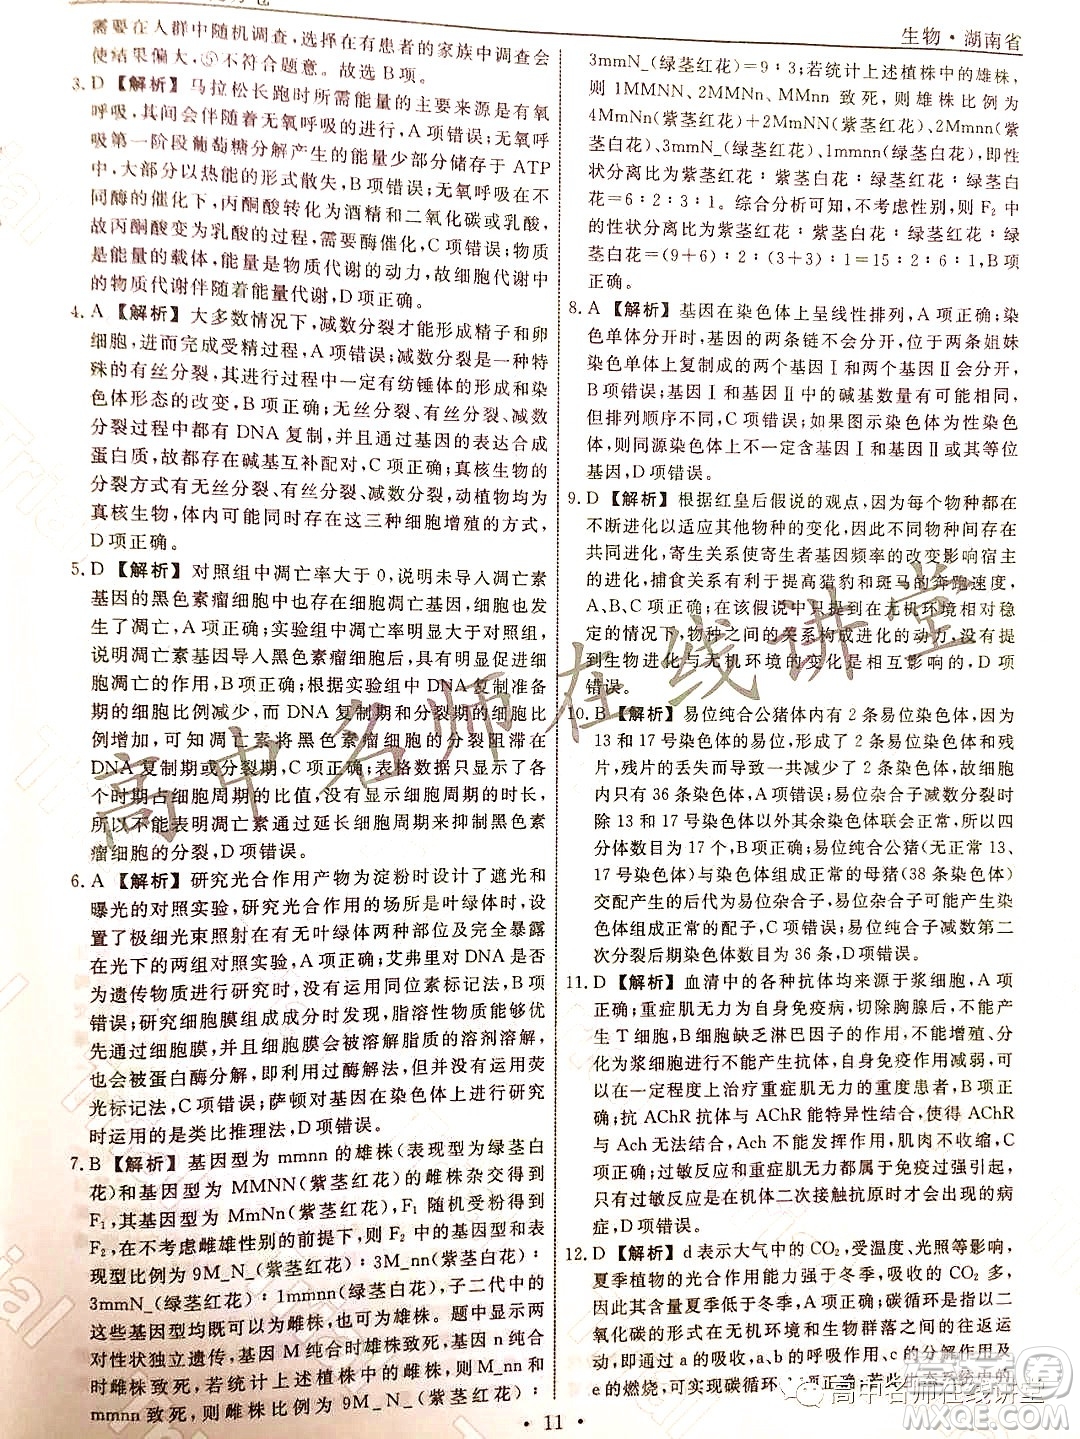 生物·湖南省
需要在人群中随机调查，选择在有患者的家族中调查会
使结果偏大，⑤不符合题意。故选 B 项。
3. D 【解析】马拉松长跑时所需能量的主要来源是有氧
呼吸，其间会伴随着无氧呼吸的进行，A 项错误；无氧呼
吸第一阶段葡萄糖分解产生的能量少部分储存于 ATP
中，大部分以热能的形式散失，B 项错误；无氧呼吸在不
同酶的催化下，丙酮酸转化为酒精和二氧化碳或乳酸，
故丙酮酸变为乳酸的过程，需要酶催化，C 项错误；物质
是能量的载体，能量是物质代谢的动力，故细胞代谢中的
物质代谢伴随着能量代谢，D 项正确。
4. A 【解析】大多数情况下，减数分裂才能形成精子和卵
细胞，进而完成受精过程，A 项错误；减数分裂是一种特
殊的有丝分裂，其进行过程中一定有纺锤体的形成和染
色体形态的改变，B 项正确；无丝分裂、有丝分裂、减数
分裂过程中都有 DNA 复制，并涉及基因的表达合成
蛋白质，故都存在碱基互补配对，C 项正确；真核细胞的
分裂方式包括无丝分裂、有丝分裂、减数分裂，动植物均为
真核生物，体内可能存在这三种细胞增殖的方式，
D 项正确。
5. D 【解析】对照组中凋亡率大于 0，说明未导入凋亡素
基因的黑色素瘤细胞中也存在相关基因使细胞发生
了凋亡，A 项正确；实验组中凋亡率大于对照组，
说明凋亡素基因导入黑色素瘤细胞中，具有促进细
胞凋亡的作用，B 项正确；根据实验组中 DNA 复制准备
期的细胞比例减少，而 DNA 复制期和分裂期的细胞比
例增加，可知凋亡素将黑色素瘤细胞的分裂阻滞在
DNA 复制期或分裂期，C 项正确；表格数据只显示了各
个时期占细胞周期的比值，没有显示细胞周期的时长，
所以不能表明凋亡素通过延长细胞周期来抑制黑色素
瘤细胞的分裂，D 项错误。
6. A 【解析】研究光合作用产物为淀粉时设计了遮光和
曝光的对照实验，研究光合作用的场所是叶绿体时，设
置了极细光束照射在有无叶绿体两种部位及完全暴露
在光下的两组对照实验，A 项正确；艾弗里对 DNA 是否
为遗传物质进行研究时，没有利用同位素标记法，B 项错
误；研究细胞膜组成成分时发现，脂溶性物质能够优
先通过细胞膜，用到了溶解脂质的溶剂溶解细胞膜，
以及蛋白酶分解，但是没有用到荧
光标记法，C 项错误；萨顿对基因在染色体上进行研究
时运用的是类比推理法，D 项错误。
7. B 【解析】基因型为 mmnn 的雄株(表现型为绿茎白
花)和基因型为 MMNN(紫茎红花)的雌株杂交得到
F₁，其基因型为 MmNn(紫茎红花)，F₁ 随机受粉得
F₂，在不考虑雌雄性别的前提下，则 F₂ 中的基因型和表
现型比例为 9M_N_(紫茎红花)：3M_nn(紫茎白花)：
3mmN_(绿茎红花)：1mmnn(绿茎白花)，子二代中的
这些基因型均可以是雌株，也可以是雄株。题中显示两
对性状独立遗传，基因 M 纯合时雄株致死，基因 n 纯合
时雌株致死，若统计上述植株中的雌株，则 M_nn 和
mmnn 致死，则雌株比例为 9M_N_(紫茎红花)：
3mmN_(绿茎红花)＝9：3；若统计上述植株中的雄株，
则 1MMNN、2MMNn、MMnn 致死，则雄株比例为
4MmNn(紫茎红花)＋2MmNN(紫茎红花)：2Mmnn(紫
茎白花)：3mmN_(绿茎红花)：1mmnn(绿茎白花)，即性
状分离比为紫茎红花：紫茎白花：绿茎红花：绿茎白
花＝6：2：3：1。综合分析可知，不考虑性别，则 F₂ 中
的性状分离比为紫茎红花：紫茎白花：绿茎红花：绿茎
白花＝(9＋6)：2：(3＋3)：1＝15：2：6：1，B 项
正确。
8. A 【解析】基因在染色体上呈线性排列，A 项正确；染
色单体分开时，基因的两条链不会分开，位于两条姐妹
染色单体上复制成的两个基因Ⅱ会分开，
B 项错误；基因Ⅰ和基因Ⅱ中的碱基对数可能相同，
但排列顺序不同，C 项错误；如果图示染色体为性染色
体，则同源染色体上不一定含基因Ⅰ、基因Ⅱ或其等位
基因，D 项错误。
9. D 【解析】根据红皇后假说的观点，因为每个物种都在
不断进化以适应其他物种的变化，因此不同物种间存在
共同进化，寄生关系使寄生者基因频率的改变影响宿主
的进化，捕食关系有利于提高猎豹和斑马的奔跑速度，
A、B、C 项正确；在该假说中只提到在无机环境相对稳
定的情况下，物种之间的关系构成进化的动力，没有提
到生物进化与无机环境的变化是相互影响的，D 项
错误。
10. B 【解析】易位纯合公猪体内有 2 条易位染色体，因为
13 和 17 号染色体的易位，形成了 2 条易位染色体和残
片，残片的丢失而导致一共减少了 2 条染色体，故细胞
内只有 36 条染色体，A 项错误；易位杂合子减数分裂时
除 13、17 号染色体以外其余染色体联会正常，所以四
分体数为 17 个，B 项正确；易位纯合公猪(无正常 13、
17 号染色体)与染色体组成正常的母猪(38 条染色体)
交配产生的后代为易位杂合子，易位杂合子也可能会产
生染色体组成正常的配子，C 项错误；该公猪减数第二
次分裂后期染色体数目为 36 条，D 项错误。
11. D 【解析】血清中的各种抗体均来源于浆细胞，A 项
正确；重症肌无力为自身免疫病，切除胸腺后，不能产
生 T 细胞，B 细胞缺乏淋巴因子的作用，不能增殖、分化
为浆细胞进行不能产生抗体，自身免疫作用减弱，可以
在一定程度上治疗重症肌无力的重度患者，B 项正
确；抗 AChR 抗体与 AChR 能特异性结合，使 AChR
与 Ach 无法结合，Ach 不能发挥作用，神经肌肉传导出现障碍，C 项
正确；过敏反应和重症肌无力都是免疫过强引起的，
只有过敏反应是在机体二次接触抗原时才会出现的病
症，D 项错误。
12. D 【解析】d 表示大气中的 CO₂，受温度、光照等影响，
夏季植物的光合作用能力强于冬季，吸收的 CO₂ 多，因
此其含量夏季低于冬季，A 项正确；碳循环是指碳以二
氧化碳的形式在无机环境和生物群落之间的往返运
动，通过 a 的吸收，a、b、c 的呼吸作用及 c 的分解作用，
e 的燃烧，可实现碳循环，C 项正确；若此生态系统中的
· 11 ·
高中名师在线讲堂
高中名师在线讲堂
MXQE.COM